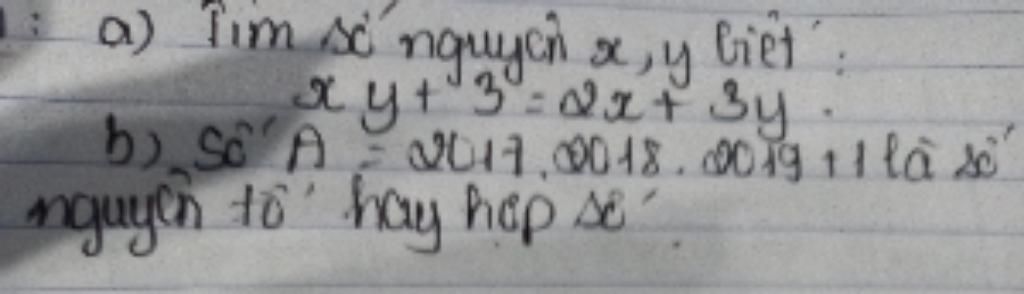 : a) Tìm số nguyên x, y biết :
xy + 3 = 2x + 3y .
b) Số A = 2017. 2018. 2019 + 1 là số
nguyên tố hay hợp số .